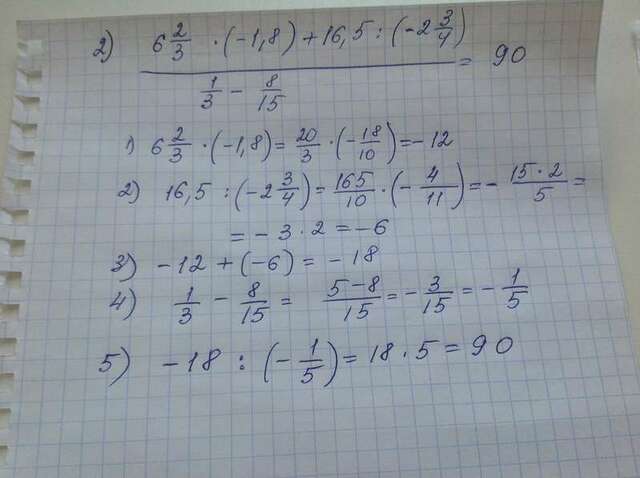 2) (6 2/3 · (-1,8) + 16,5 : (-2 3/4)) / (1/3 - 8/15) = 90
1) 6 2/3 · (-1,8) = 20/3 · (-18/10) = -12
2) 16,5 : (-2 3/4) = 165/10 · (-4/11) = - 15·2/5 =
= -3·2 = -6
3) -12 + (-6) = -18
4) 1/3 - 8/15 = 5-8/15 = -3/15 = -1/5
5) -18 : (-1/5) = 18·5 = 90